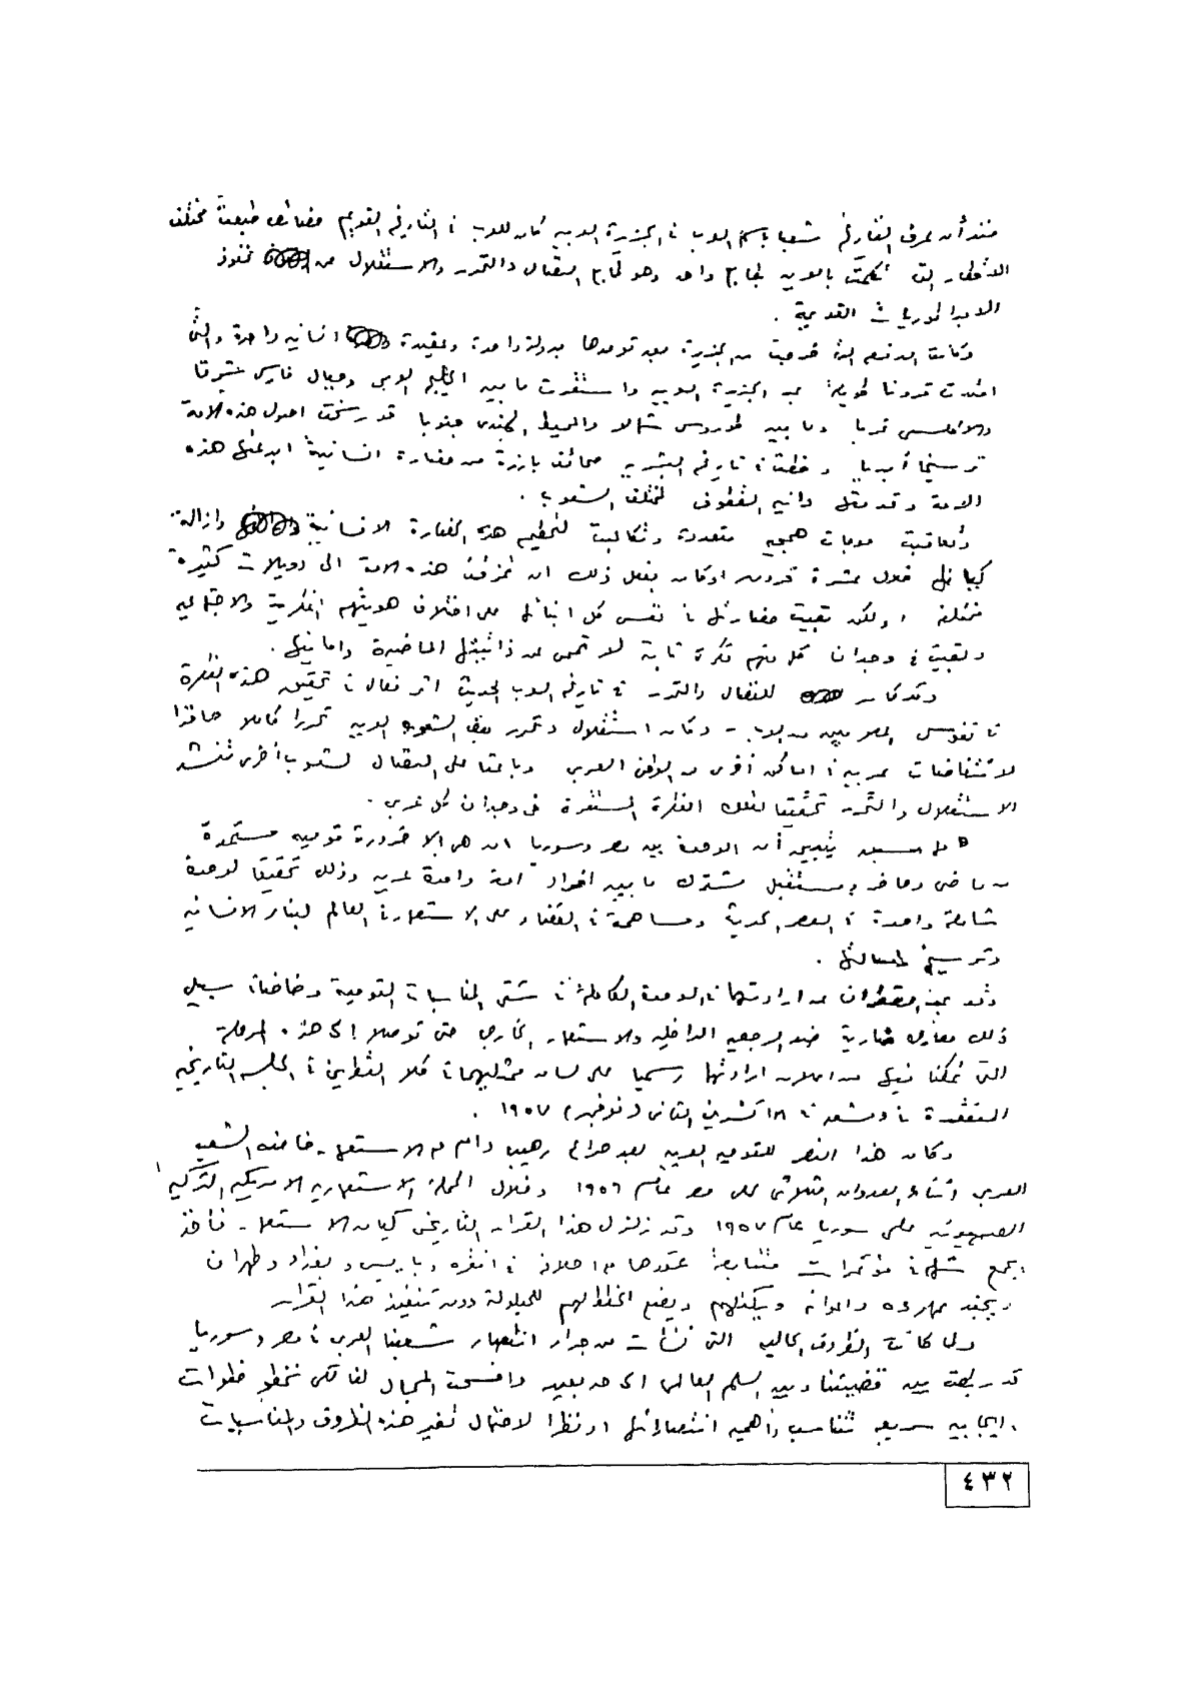 منذ أن عرف التاريخ شعبا باسم العرب في الجزيرة العربية كان للعرب في التاريخ القديم خصائص طبعت مختلف
الاقطار التي تكلمت بالعربية بطابع واحد وهو طابع النضال والتحرر والاستقلال من نفوذ
الامبراطوريات القديمة .
وكانت الدفعة التي خرجت من الجزيرة بعد توحدها بدولة واحدة وعقيدة انسانية واحدة والتي
امتدت قرونا طويلة عبر الجزيرة العربية واستقرت ما بين الخليج العربي وجبال فارس شرقا
والاطلسي غربا وما بين طوروس شمالا والمحيط الهندي جنوبا قد رسخت اصول هذه الامة
ترسيخا أبديا وخطت في تاريخ البشرية صحائف بارزة من حضارة انسانية ابدعتها هذه
الامة وقدمتها دانية القطوف لمختلف الشعوب .
وتعاقبت موجات همجية متعددة وتكالبت لتحطيم هذه الحضارة الانسانية وازالة
كيانها خلال عشرة قرون وكان بفعل ذلك ان تمزقت هذه الامة الى دويلات كثيرة
مختلفة ، ولكن بقيت حضارتها في نفس كل ابنائها على اختلاف هويتهم الفكرية والاجتماعية
وبقيت في وجدان كل منهم فكرة ثابتة لا تمحى عن ذاتيتها الماضية وامانيها .
وقد كان للنضال والتحرر في تاريخ العرب الحديث اثر فعال في تحقيق هذه الفكرة
في نفوس المصريين من العرب - وكان استقلال وتحرر بعض الشعوب العربية تحررا كاملا حافزا
لانتفاضات عربية في اماكن أخرى من الوطن العربي وباعثا على النضال لشعوب أخرى تنشد
الاستقلال والتحرر تحقيقا لتلك الفكرة المستقرة في وجدان كل عربي .
مما سبق يتبين أن الوحدة بين مصر وسوريا ان هي إلا ضرورة قومية مستمدة
من ماضي وحاضر ومستقبل مشترك ما بين افراد امة واحدة عربية وذلك تحقيقا لوحدة
شاملة واحدة في العصر الحديث ومساهمة في القضاء على الاستعمار في العالم لبناء الانسانية
وترسيخ .
وقد عبر القطران عن ارادتهما في الوحدة الكاملة في شتى المناسبات القومية وخاضا في سبيل
ذلك معارك ضارية ضد الرجعية الداخلية والاستعمار الخارجي حتى توصلا الى هذه المرحلة
التي تمكنا فيها من اعلان ارادتها رسميا على لسان ممثليهما في كلا القطرين في الجلسة التاريخية
المنعقدة في دمشق في ١٨ تشرين الثاني ( نوفمبر ) ١٩٥٧ .
وكان هذا النصر للقومية العربية بعد صراع رهيب دام مع الاستعمار خاضه الشعب
العربي أثناء العدوان الثلاثي على مصر عام ١٩٥٦ وخلال الحملة الاستعمارية الامريكية التركية
الصهيونية على سوريا عام ١٩٥٧ وقد زلزل هذا القرار التاريخي كيان الاستعمار فأخذ
يجمع شمله في مؤتمرات متتابعة عقدها مع احلافه في انقره وباريس وبغداد وطهران
ويجند عملاءه واعوانه ويكتلهم ويضع الخطط لهم للحيلولة دون تنفيذ هذا القرار
ولما كانت الظروف الحالية التي نشأت من جراء انتصار شعبنا العربي في مصر وسوريا
قد ربطت بين قضيتنا وبين السلم العالمي الى حد بعيد وافسحت المجال لنا لكي نخطو خطوات
ايجابية سريعة تتناسب واهمية انتصاراتها ونظرا لاحتمال تغير هذه الظروف والمناسبات
٤٣٢